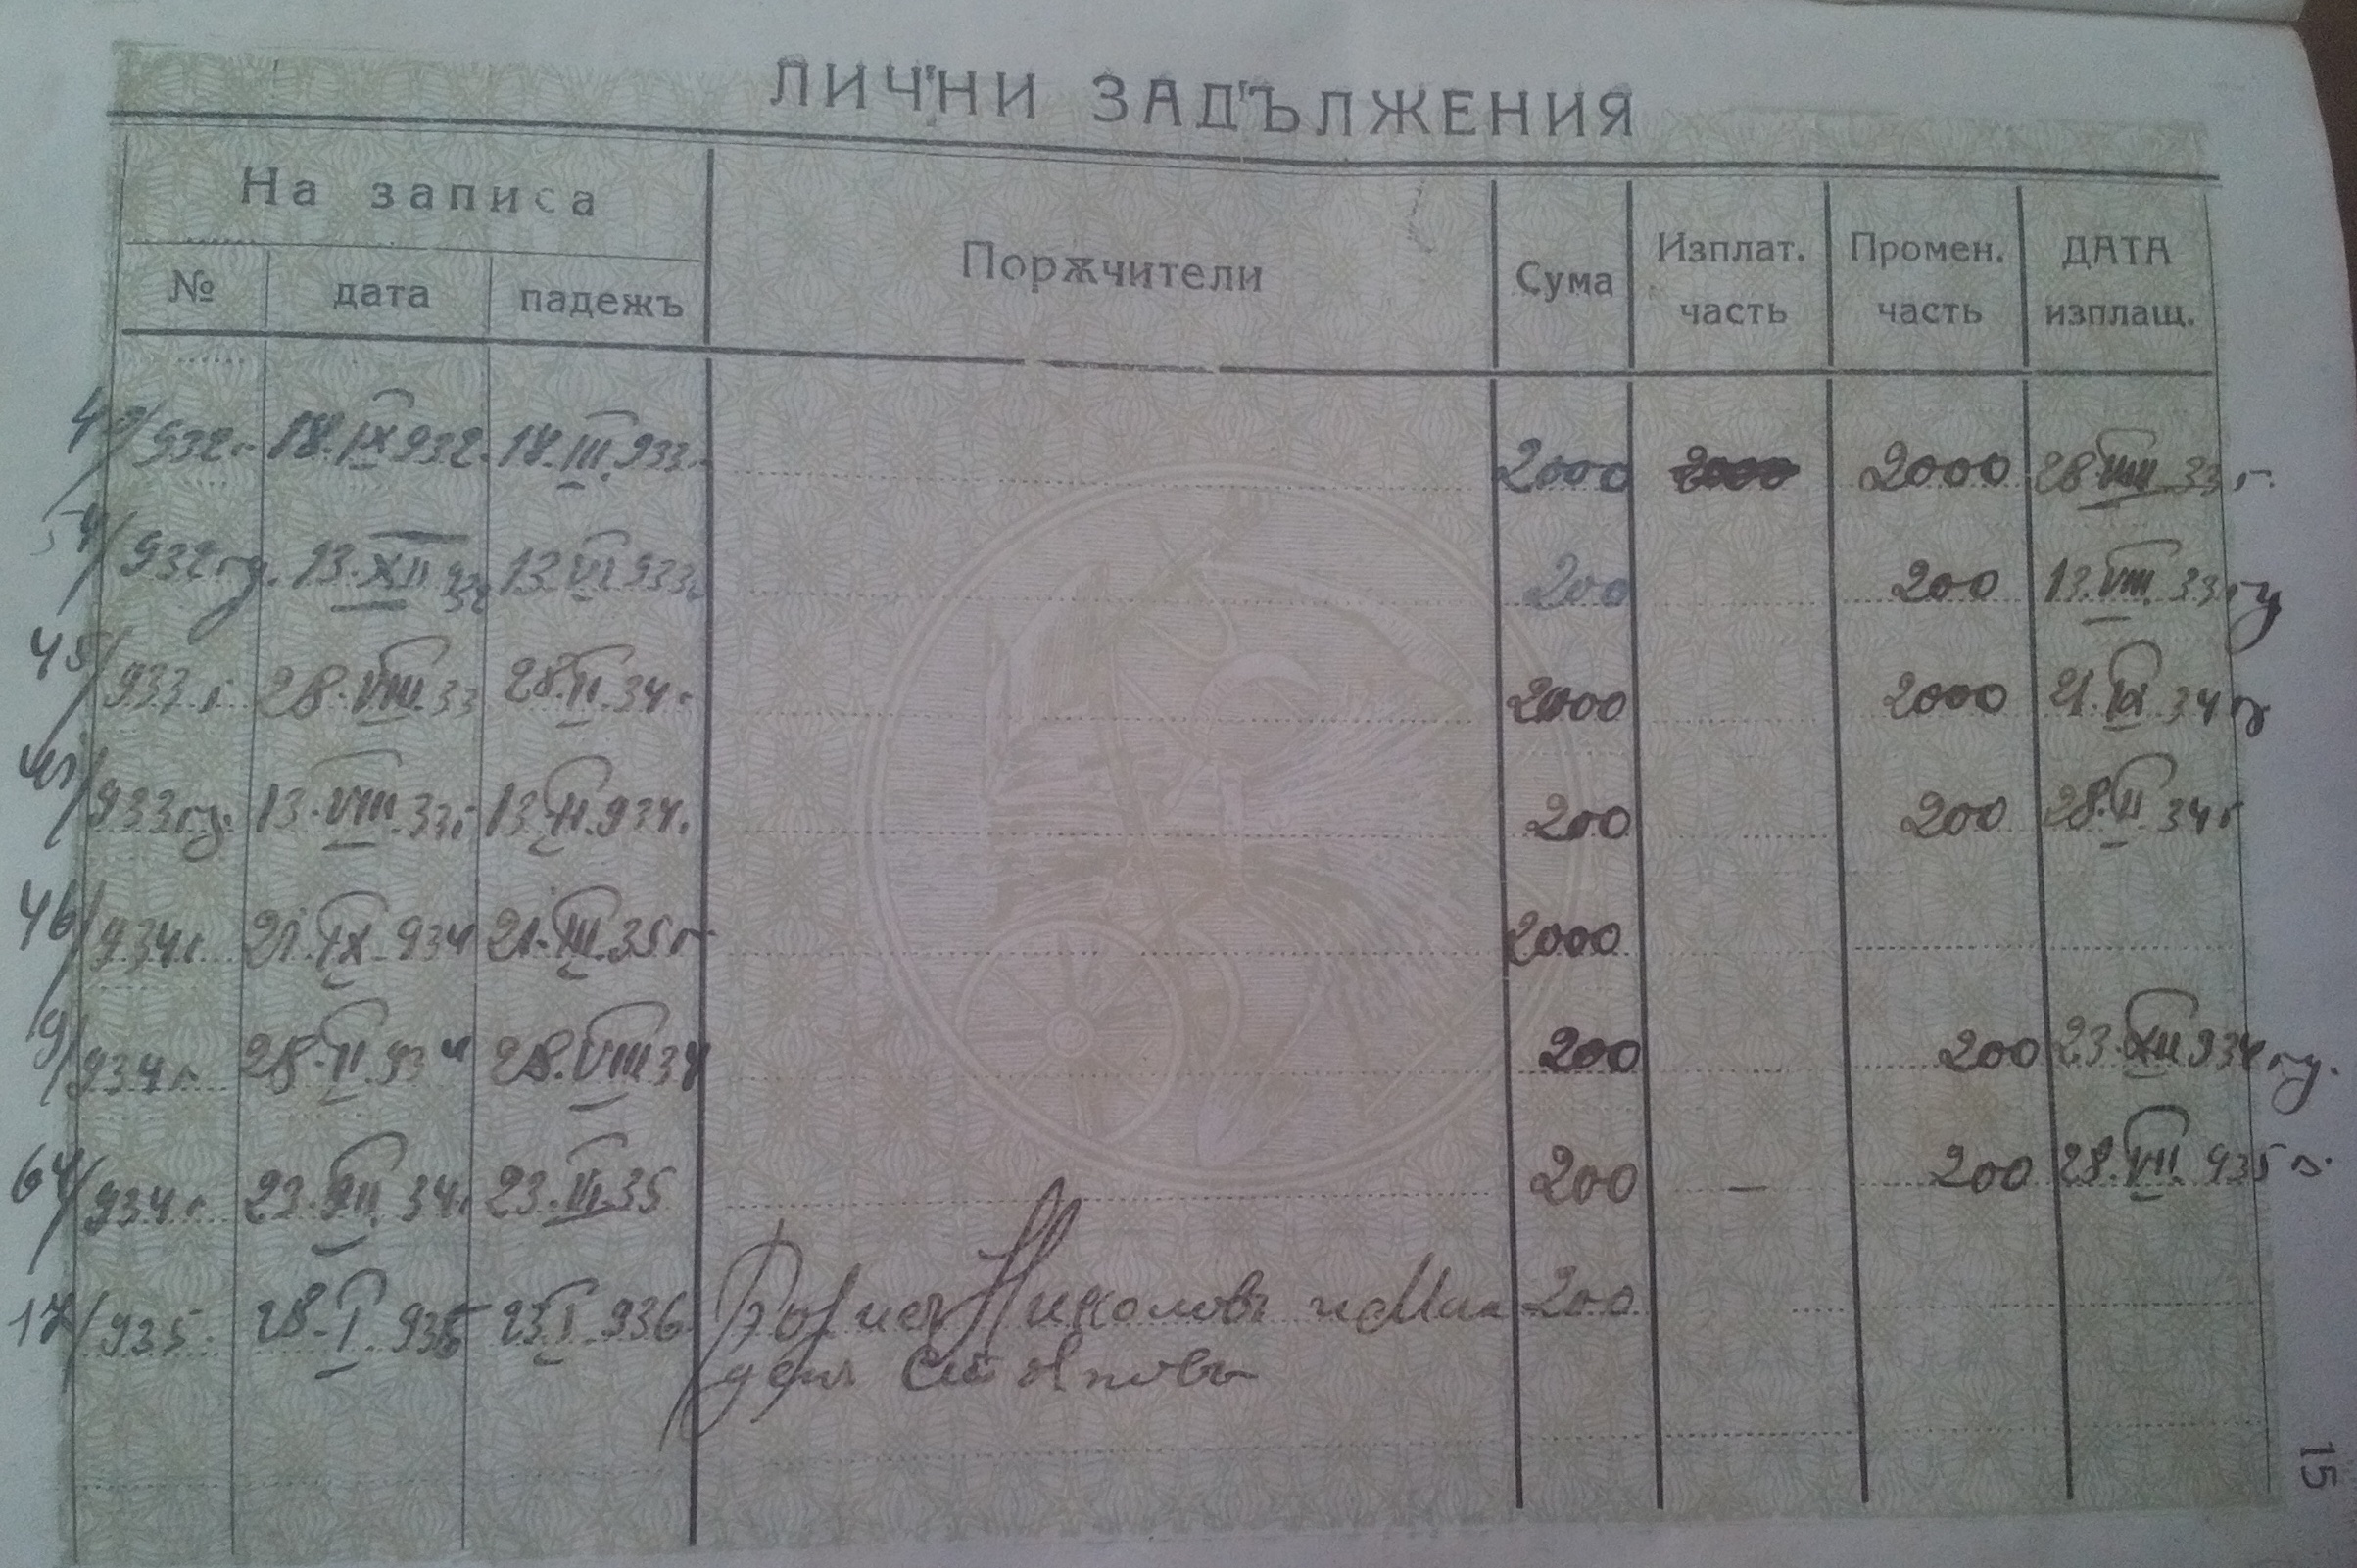 ЛИЧНИ ЗАДЪЛЖЕНИЯ
На записа
№ дата падежъ Порѫчители Сума Изплат. часть Промен. часть ДАТА изплащ.
/932г. 18.IX 932. 18.III.933. 2000 2000 2000 28.VIII.33 г.
54/932 гд. 13.XII 932 13.VI 933г 200 200 13.VIII.33 гд
45/933 г. 28.VIII.33 28.II.34 г. 2000 2000 21.IX 34 г
/933 гд. 13.VIII.33 г. 13.II.934. 200 200 28.II 34 г
46/934 г. 21.IX 934 21.III.35 г 2000
9/934 г. 28.II.934 28.VIII 34 200 200 23.XII 934 гд.
64/934 г. 23.XII 34 г 23.III.35 200 — 200 28.VII.935 г.
17/935. 28.I.935 23.I.936 Борисъ Николовъ и Мла 200
денъ Стояновъ
15